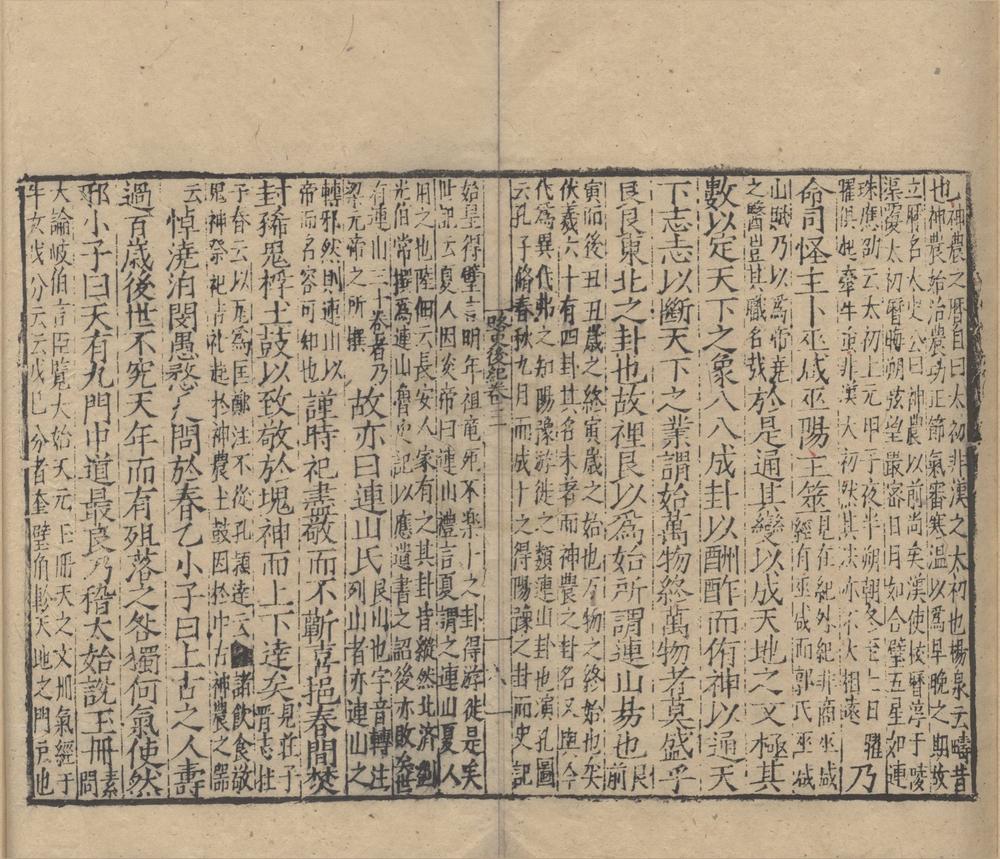 也神農之曆自曰太初非漢之太初也楊泉云疇昔
神農始治農功正節氣審寒温以爲早晚之期故
立曆名太史公曰神農以前尚矣漢使校曆淳于陵
渠覆太初曆晦朔弦望最密日月如合璧五星如連
珠應劭云太初上元甲子夜半朔朝冬至七日曜
曜俱起牽牛重非漢太初然其法亦不大相遠
乃
命司怪主卜巫咸巫陽主筮
見在紀外紀非商巫咸
經有巫咸而郭氏巫咸
山賦乃以爲帝堯
之醫豈其職名哉
於是通其變以成天地之文極其
數以定天下之象八八成卦以酬酢而侑神以通天
下志志以斷天下之業謂始萬物終萬物者莫盛乎
艮艮東北之卦也故裡艮以爲始所謂連山昜也
艮
前
寅而後丑丑歲之終寅歲之始也万物之終始也矣
伏羲六十有四卦其名未著而神農之卦名又與今
代爲異代弗之知陽豫游徙之類連山卦也演孔圖
云孔子脩春秋九月而成卜之得陽豫之卦而史記
路史後紀卷三
八
始皇得璧言明年祖龍死不樂卜之卦得游徙是矣
世記云夏人因炎帝曰連山禮言夏謂之連山夏人
用之也陸佃云長安人家有之其卦皆縱然北濟劉
光伯常撰爲連山魯史記以應遺書之詔後亦敗矣世
有連山三十卷者乃
梁元帝之所撰
故亦曰連山氏
艮山也字音轉注
列山者亦連山之
轉邪然則連山以
帝而名容可知也
謹時祀盡敬而不蘄喜挹春間焚
封豨鬼桴土鼓以致敬於塊神而上下達矣
見莊子
晋志杜
子春云以瓦爲匡鄭注不從孔穎達云諸飲食故
鬼神祭祀吉礼起於神農土鼓因於中古神農之器
云
悼澆泊閔愚憗乃問於春乙小子曰上古之人壽
過百歲後世不究天年而有殂落之咎獨何氣使然
邪小子曰天有九門中道最良乃稽太始說玉冊
素
問
大論岐伯言臣覽大始天元玉冊天之文丌氣經于
牛女戊分云云戊己分者奎璧角軫天地之門戸也